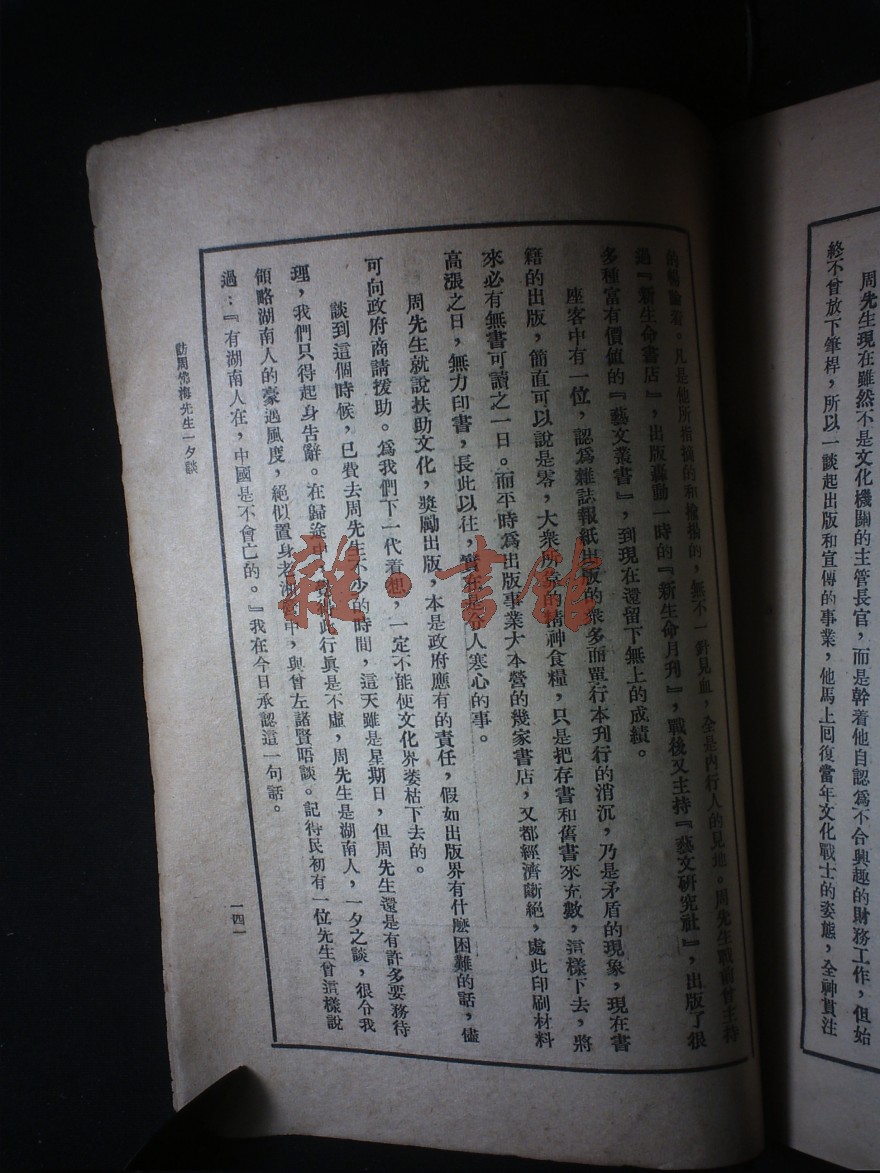 周先生現在雖然不是文化機關的主管長官，而是幹着他自認爲不合興趣的財務工作，但始
終不曾放下筆桿，所以一談起出版和宣傳的事業，他馬上回復當年文化戰士的姿態，全神貫注
的暢論着。凡是他所指摘的和檢揚的，無不一針見血，全是內行人的見地。周先生戰前曾主持
過『新生命書店』，出版轟動一時的『新生命月刊』，戰後又主持『藝文研究社』，出版了很
多種富有價値的『藝文叢書』，到現在還留下無上的成績。
座客中有一位，認爲雜誌報紙出版的衆多而單行本刊行的消沉，乃是矛盾的現象，現在書
籍的出版，簡直可以說是零，大衆所靠的精神食糧，只是把存書和舊書來充數，這樣下去，將
來必有無書可讀之一日。而平時爲出版事業大本營的幾家書店，又都經濟斷絕，處此印刷材料
高漲之日，無力印書，長此以往，實在是令人寒心的事。
周先生就說扶助文化，獎勵出版，本是政府應有的責任，假如出版界有什麽困難的話，儘
可向政府商請援助。爲我們下一代着想，一定不能使文化界萎枯下去的。
談到這個時候，已費去周先生不少的時間，這天雖是星期日，但周先生還是有許多要務待
理，我們只得起身告辭。在歸途中，此行眞是不虛，周先生是湖南人，一夕之談，很令我
領略湖南人的豪邁風度，絕似置身老湘營中，與曾左諸賢晤談。記得民初有一位先生曾這樣說
過：『有湖南人在，中國是不會亡的。』我在今日承認這一句話。
訪周佛海先生一夕談
一四一
雜·書館